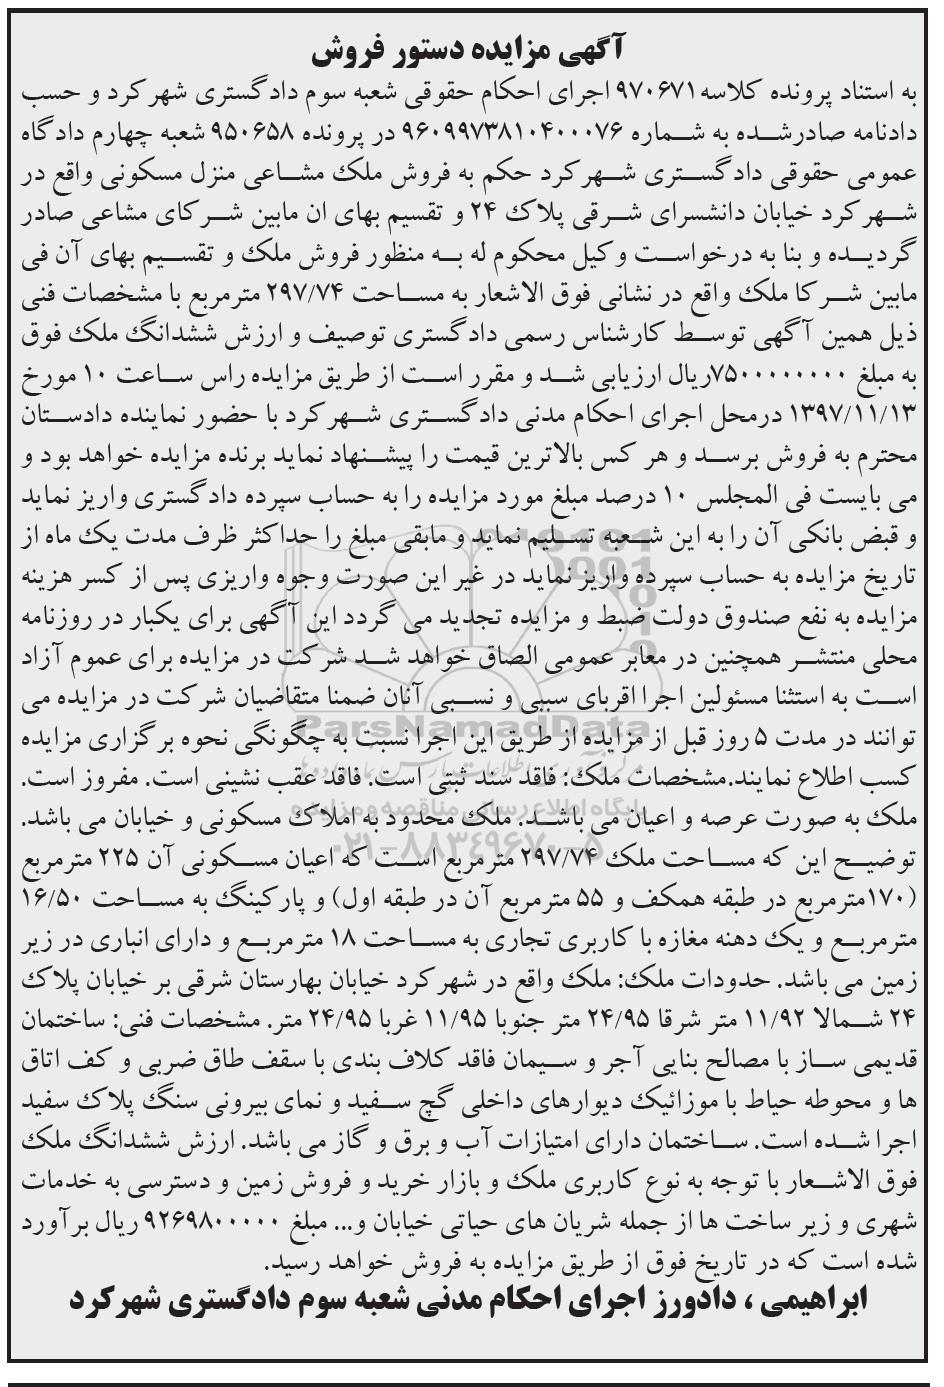 آگهی مزایده دستور فروش
به استناد پرونده کلاسه۹۷۰۶۷۱ اجرای احکام حقوقی شعبه سوم دادگستری شهرکرد و حسب
دادنامه صادرشده به شماره ۹۶۰۹۹۷۳۸۱۰۴۰۰۰۷۶ در پرونده ۹۵۰۶۵۸ شعبه چهارم دادگاه
عمومی حقوقی دادگستری شهرکرد حکم به فروش ملک مشاعی منزل مسکونی واقع در
شهرکرد خیابان دانشسرای شرقی پلاک ۲۴ و تقسیم بهای ان مابین شرکای مشاعی صادر
گردیده و بنا به درخواست وکیل محکوم له به منظور فروش ملک و تقسیم بهای آن فی
مابین شرکا ملک واقع در نشانی فوق الاشعار به مساحت ۲۹۷/۷۴ مترمربع با مشخصات فنی
ذیل همین آگهی توسط کارشناس رسمی دادگستری توصیف و ارزش ششدانگ ملک فوق
به مبلغ ۷۵۰۰۰۰۰۰۰۰ریال ارزیابی شد و مقرر است از طریق مزایده راس ساعت ۱۰ مورخ
۱۳۹۷/۱۱/۱۳ درمحل اجرای احکام مدنی دادگستری شهرکرد با حضور نماینده دادستان
محترم به فروش برسد و هر کس بالاترین قیمت را پیشنهاد نماید برنده مزایده خواهد بود و
می بایست فی المجلس ۱۰ درصد مبلغ مورد مزایده را به حساب سپرده دادگستری واریز نماید
و قبض بانکی آن را به این شعبه تسلیم نماید و مابقی مبلغ را حداکثر ظرف مدت یک ماه از
تاریخ مزایده به حساب سپرده واریز نماید در غیر این صورت وجوه واریزی پس از کسر هزینه
مزایده به نفع صندوق دولت ضبط و مزایده تجدید می گردد این آگهی برای یکبار در روزنامه
محلی منتشر همچنین در معابر عمومی الصاق خواهد شد شرکت در مزایده برای عموم آزاد
است به استثنا مسئولین اجرا اقربای سببی و نسبی آنان ضمنا متقاضیان شرکت در مزایده می
توانند در مدت ۵ روز قبل از مزایده از طریق این اجرا نسبت به چگونگی نحوه برگزاری مزایده
کسب اطلاع نمایند.مشخصات ملک: فاقد سند ثبتی است. فاقد عقب نشینی است. مفروز است.
ملک به صورت عرصه و اعیان می باشد. ملک محدود به املاک مسکونی و خیابان می باشد.
توضیح این که مساحت ملک ۲۹۷/۷۴ مترمربع است که اعیان مسکونی آن ۲۲۵ مترمربع
(۱۷۰مترمربع در طبقه همکف و ۵۵ مترمربع آن در طبقه اول) و پارکینگ به مساحت ۱۶/۵۰
مترمربع و یک دهنه مغازه با کاربری تجاری به مساحت ۱۸ مترمربع و دارای انباری در زیر
زمین می باشد. حدودات ملک: ملک واقع در شهرکرد خیابان بهارستان شرقی بر خیابان پلاک
۲۴ شمالا ۱۱/۹۲ متر شرقا ۲۴/۹۵ متر جنوبا ۱۱/۹۵ غربا ۲۴/۹۵ متر. مشخصات فنی: ساختمان
قدیمی ساز با مصالح بنایی آجر و سیمان فاقد کلاف بندی با سقف طاق ضربی و کف اتاق
ها و محوطه حیاط با موزائیک دیوارهای داخلی گچ سفید و نمای بیرونی سنگ پلاک سفید
اجرا شده است. ساختمان دارای امتیازات آب و برق و گاز می باشد. ارزش ششدانگ ملک
فوق الاشعار با توجه به نوع کاربری ملک و بازار خرید و فروش زمین و دسترسی به خدمات
شهری و زیر ساخت ها از جمله شریان های حیاتی خیابان و... مبلغ ۹۲۶۹۸۰۰۰۰۰ ریال برآورد
شده است که در تاریخ فوق از طریق مزایده به فروش خواهد رسید.
ابراهیمی ، دادورز اجرای احکام مدنی شعبه سوم دادگستری شهرکرد
ParsNamadData
پایگاه اطلاع رسانی مناقصه و مزایده
۰۲۱-۸۸۳۴۹۶۷۰-۵